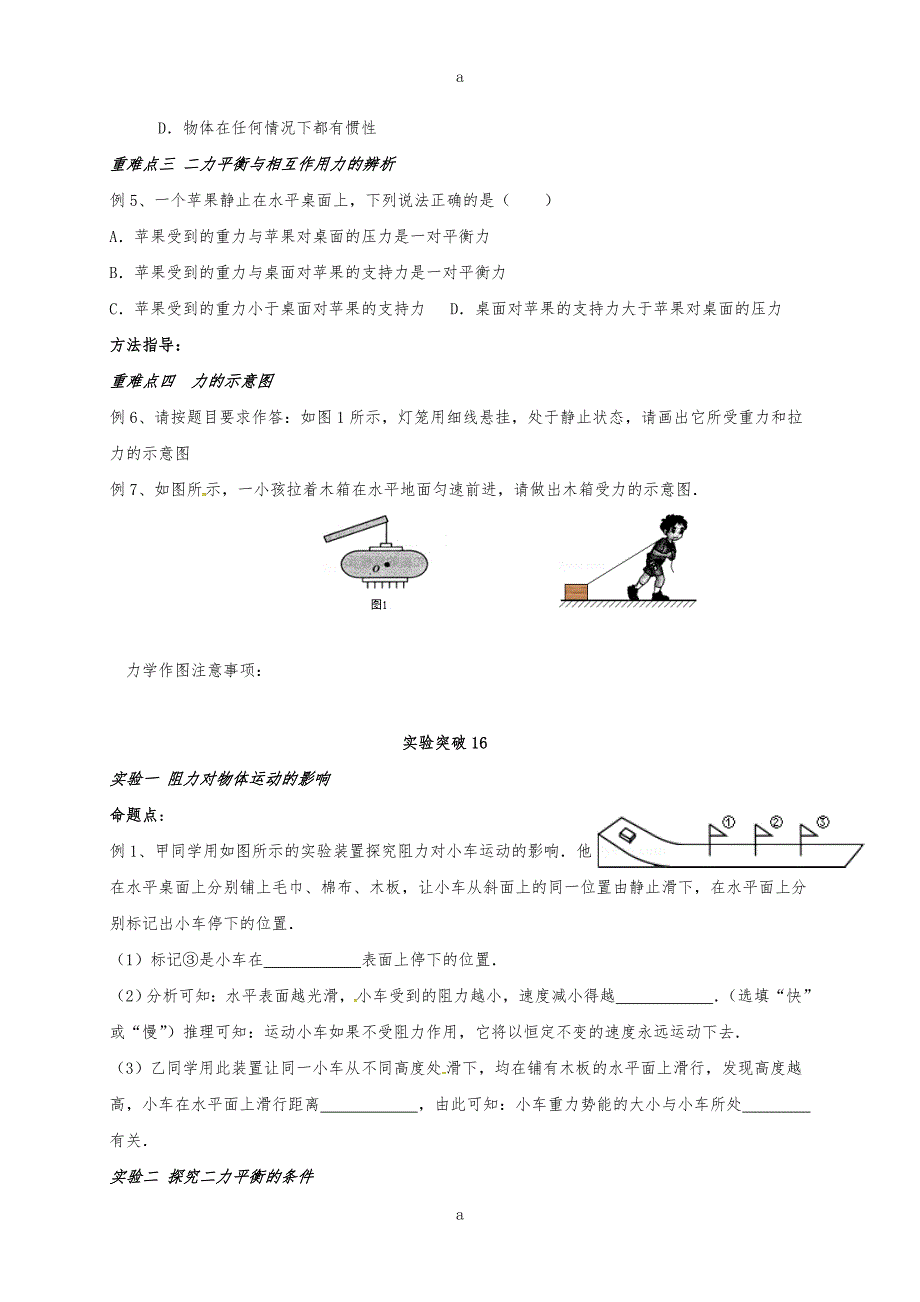 a
D．物体在任何情况下都有惯性
重难点三 二力平衡与相互作用力的辨析
例 5、一个苹果静止在水平桌面上，下列说法正确的是（　　）
A．苹果受到的重力与苹果对桌面的压力是一对平衡力
B．苹果受到的重力与桌面对苹果的支持力是一对平衡力
C．苹果受到的重力小于桌面对苹果的支持力 D．桌面对苹果的支持力大于苹果对桌面的压力
方法指导：
重难点四 力的示意图
例 6、请按题目要求作答：如图 1 所示，灯笼用细线悬挂，处于静止状态，请画出它所受重力和拉
力的示意图
例 7、如图所示，一小孩拉着木箱在水平地面匀速前进，请做出木箱受力的示意图．
O
图1
力学作图注意事项：
实验突破 16
实验一 阻力对物体运动的影响
命题点：
① ② ③
例 1、甲同学用如图所示的实验装置探究阻力对小车运动的影响．他
在水平桌面上分别铺上毛巾、棉布、木板，让小车从斜面上的同一位置由静止滑下，在水平面上分
别标记出小车停下的位置．
（1）标记③是小车在____________表面上停下的位置．
（2）分析可知：水平表面越光滑，小车受到的阻力越小，速度减小得越____________．（选填“快”
或“慢”）推理可知：运动小车如果不受阻力作用，它将以恒定不变的速度永远运动下去．
（3）乙同学用此装置让同一小车从不同高度处滑下，均在铺有木板的水平面上滑行，发现高度越
高，小车在水平面上滑行距离____________，由此可知：小车重力势能的大小与小车所处________
有关．
实验二 探究二力平衡的条件
a